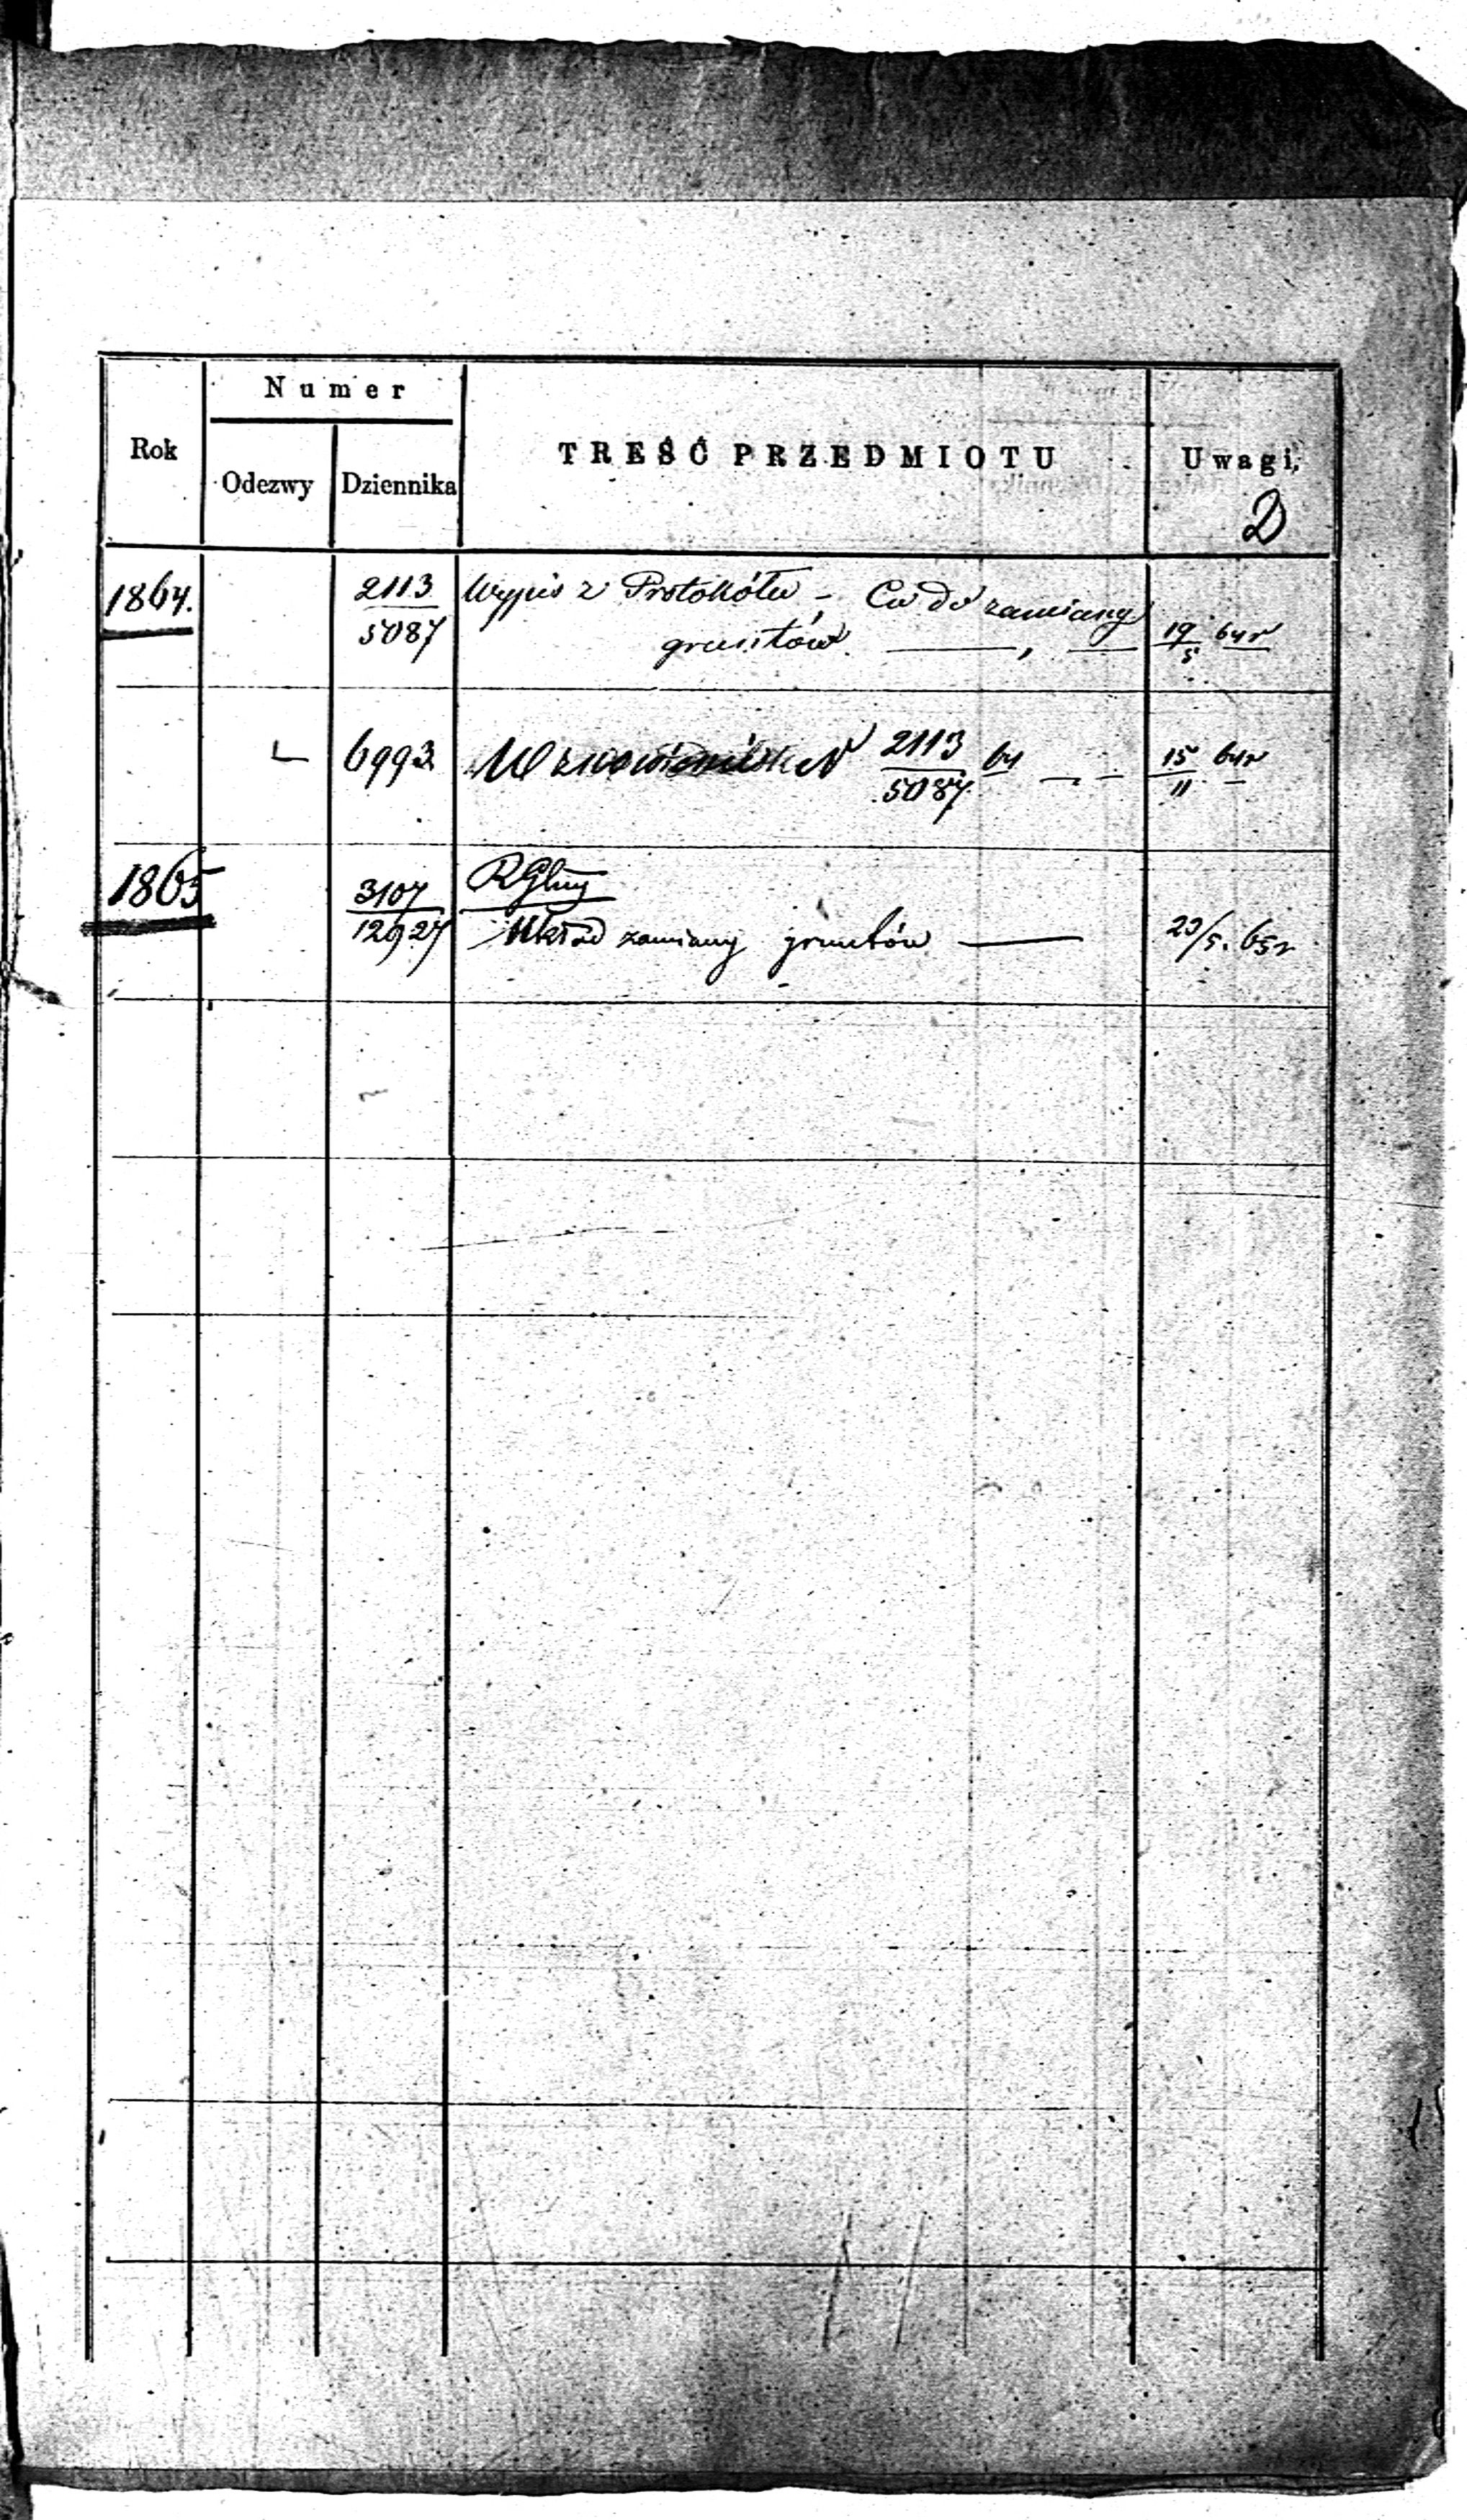 Numer
Rok Odezwy Dziennika TREŚĆ PRZEDMIOTU Uwagi,
D
1864. 2113/5087 Wypis z Protokółu – Co do zamiany
gruntów. ——, — 19/5 64r
6993 2113/5087 64 — - 15/11 64r
1865 3107/12927
Układ zamiany gruntów — 23/5. 65r